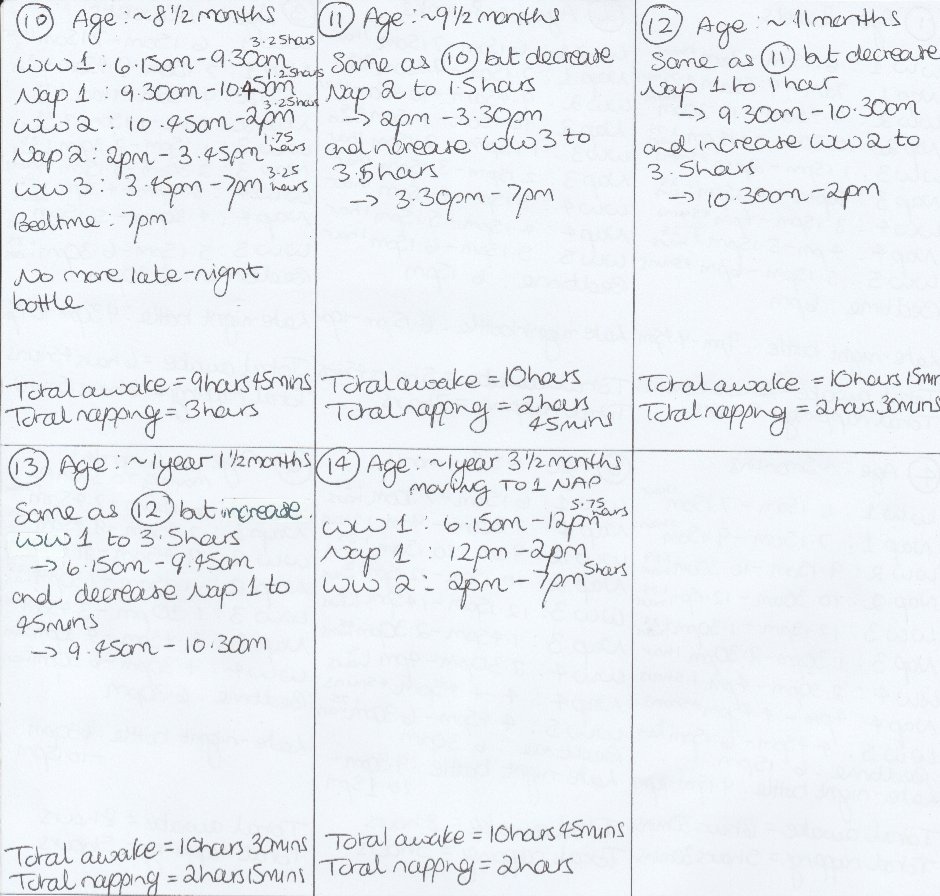 10 Age: ~8 1/2 months
WW 1: 6.15am-9.30am 3.25hours
Nap 1: 9.30am-10.45am 1.25hours
WW 2: 10.45am-2pm 3.25hours
Nap 2: 2pm-3.45pm 1.75 hours
WW 3: 3.45pm-7pm 3.25 hours
Bedtime: 7pm
No more late-night
bottle
Total awake = 9hours 45mins
Total napping = 3hours
11 Age: ~9 1/2 months
Same as 10 but decrease
Nap 2 to 1.5hours
→ 2pm-3.30pm
and increase WW3 to
3.5hours
→ 3.30pm-7pm
Total awake = 10hours
Total napping = 2hours
45mins
12 Age: ~11months
Same as 11 but decrease
Nap 1 to 1 hour
→ 9.30am-10.30am
and increase WW2 to
3.5hours
→ 10.30am-2pm
Total awake = 10hours 15min
Total napping = 2hours 30mins
13 Age: ~1year 1 1/2months
Same as 12 but increase
WW1 to 3.5hours
→ 6.15am-9.45am
and decrease Nap 1 to
45mins
→ 9.45am-10.30am
Total awake = 10hours 30mins
Total napping = 2hours15mins
14 Age: ~1year 3 1/2months
MOVING TO 1 NAP
WW 1: 6.15am-12pm 5.75 hours
Nap 1: 12pm-2pm
WW 2: 2pm-7pm 5hours
Total awake = 10hours 45mins
Total napping = 2hours